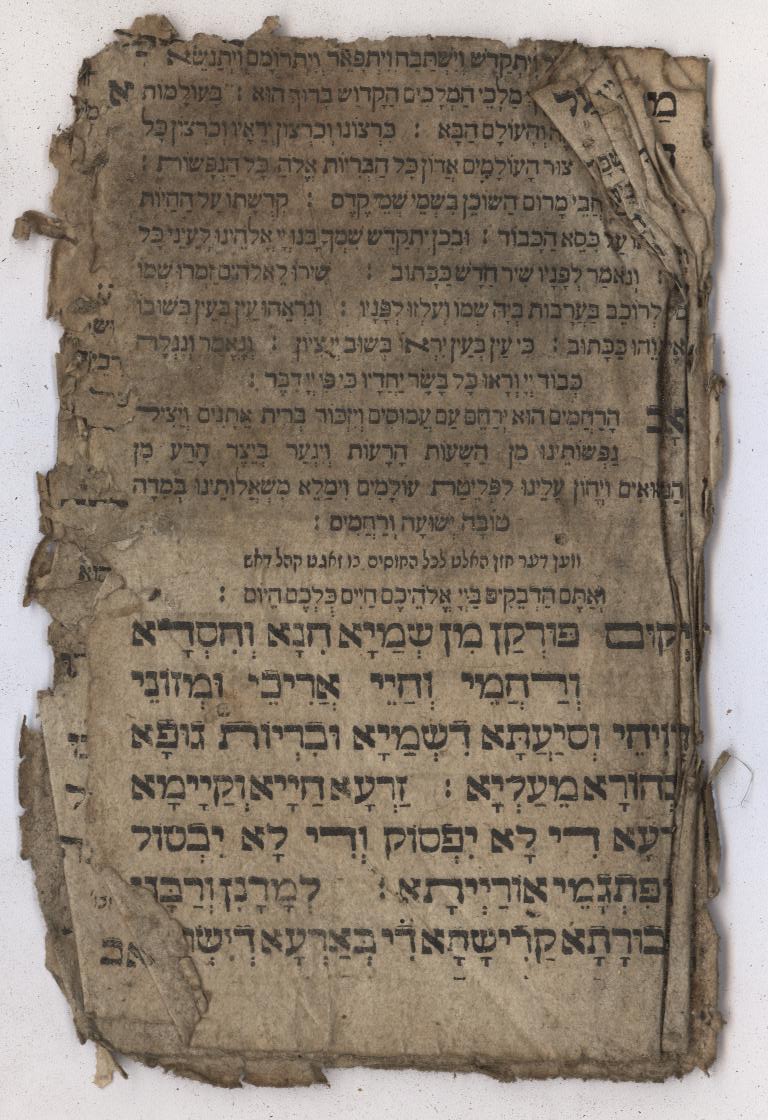 ויתקדש וישתבח ויתפאר ויתרומם ויתנשא
מלכי המלכים הקדוש ברוך הוא : בעולמות
והעולם הבא : כרצונו וכרצון יראיו וכרצון כל
צור העולמים אדון כל הבריות אלוה כל הנפשות :
מרום השוכן בשמי שמי קדם : קדשתו על החיות
על כסא הכבוד : ובכן יתקדש שמך בנו יי אלהינו לעיני כל
ונאמר לפניו שיר חדש ככתוב : שירו לאלהים זמרו שמו
לרוכב בערבות ביה שמו ועלזו לפניו : ונראהו עין בעין בשובו
ככתוב : כי עין בעין יראו בשוב יי ציון : ונאמר ונגלה
כבוד יי וראו כל בשר יחדיו כי פי יי דבר :
אב הרחמים הוא ירחם עם עמוסים ויזכור ברית אתנים ויציל
נפשותינו מן השעות הרעות ויגער ביצר הרע מן
הנשואים ויחון עלינו לפליטת עולמים וימלא משאלותינו במדה
טובה ישועה ורחמים :
ווען דער חזן האלט לכל החוסים בו זאגט קהל דאש
ואתם הדבקים ביי אלהיכם חיים כלכם היום :
יקום פורקן מן שמיא חנא וחסדא
ורחמי וחיי אריכי ומזוני
רויחי וסיעתא דשמיא ובריות גופא
נהורא מעליא : זרעא חייא וקיימא
זרעא די לא יפסוק ודי לא יבטול
מפתגמי אורייתא : למרנן ורבנן
חבורתא קדישתא די בארעא דישר